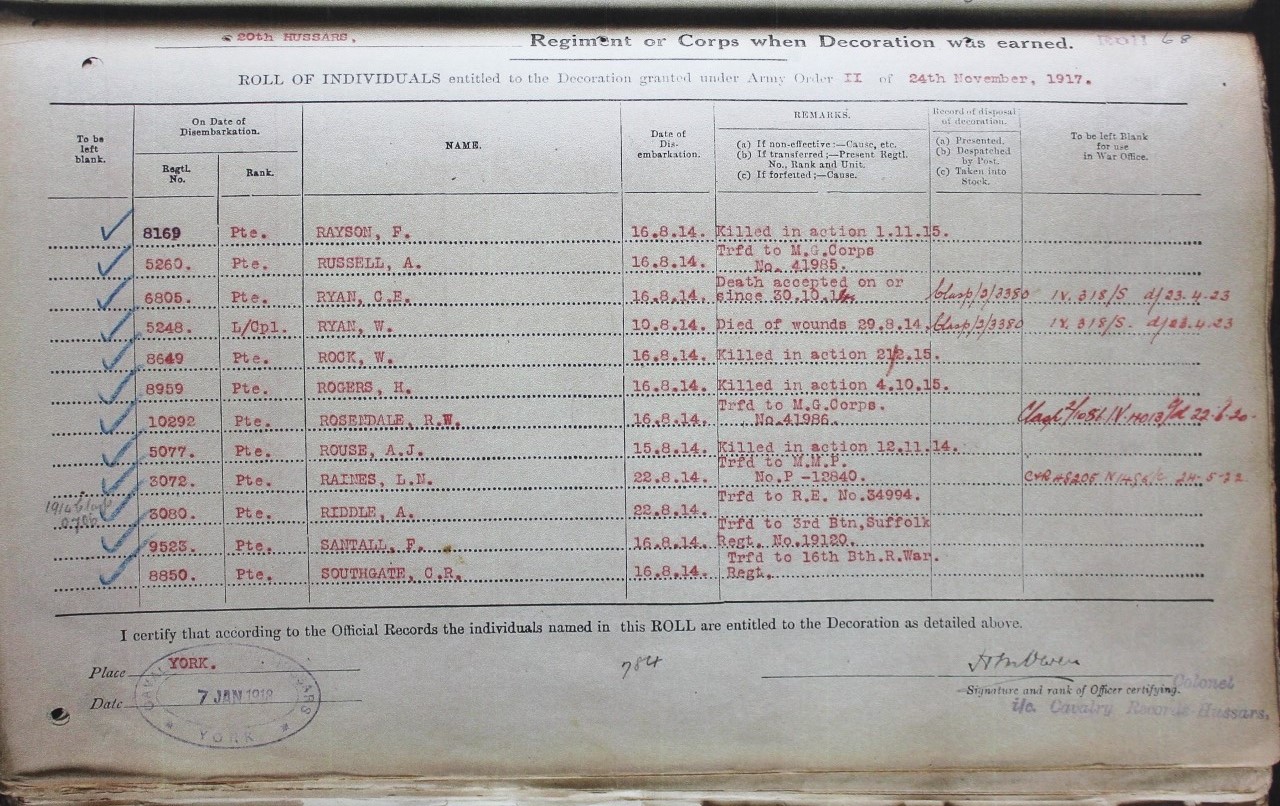 20th HUSSARS, Regiment or Corps when Decoration was earned. Roll 68
ROLL OF INDIVIDUALS entitled to the Decoration granted under Army Order II of 24th November, 1917.
To be left blank.
On Date of Disembarkation.
Regtl. No.
Rank.
NAME.
Date of Dis-embarkation.
REMARKS.
(a) If non-effective:—Cause, etc.
(b) If transferred;—Present Regtl. No., Rank and Unit.
(c) If forfeited;—Cause.
Record of disposal of decoration.
(a) Presented.
(b) Despatched by Post.
(c) Taken into Stock.
To be left Blank for use in War Office.
8169 Pte. RAYSON, F. 16.8.14. Killed in action 1.11.15.
5260. Pte. RUSSELL, A. 16.8.14. Trfd to M.G.Corps
No. 41985.
6805. Pte. RYAN, C.E. 16.8.14. Death accepted on or
since 30.10.14. Clasp/3/3380 IV. 318/S d/23.4.23
5248. L/Cpl. RYAN, W. 10.8.14. Died of wounds 29.8.14. Clasp/3/3380 IV. 318/S. d/23.4.23
8649 Pte. ROCK, W. 16.8.14. Killed in action 21/2.15.
8959 Pte. ROGERS, H. 16.8.14. Killed in action 4.10.15.
10292 Pte. ROSENDALE, R.W. 16.8.14. Trfd to M.G.Corps.
No.41986.
5077. Pte. ROUSE, A.J. 15.8.14. Killed in action 12.11.14.
3072. Pte. RAINES, L.N. 22.8.14. Trfd to M.M.P.
No.P -12840. 24-5-22
3080. Pte. RIDDLE, A. 22.8.14. Trfd to R.E. No.34994.
9523. Pte. SANTALL, F. 16.8.14. Trfd to 3rd Btn,Suffolk
Regt. No.19120.
8850. Pte. SOUTHGATE, C.R. 16.8.14. Trfd to 16th Bth.R.War.
Regt.
I certify that according to the Official Records the individuals named in this ROLL are entitled to the Decoration as detailed above.
Place YORK.
Date 7 JAN 1918
YORK
784
Signature and rank of Officer certifying.
Colonel
i/c. Cavalry Records Hussars,